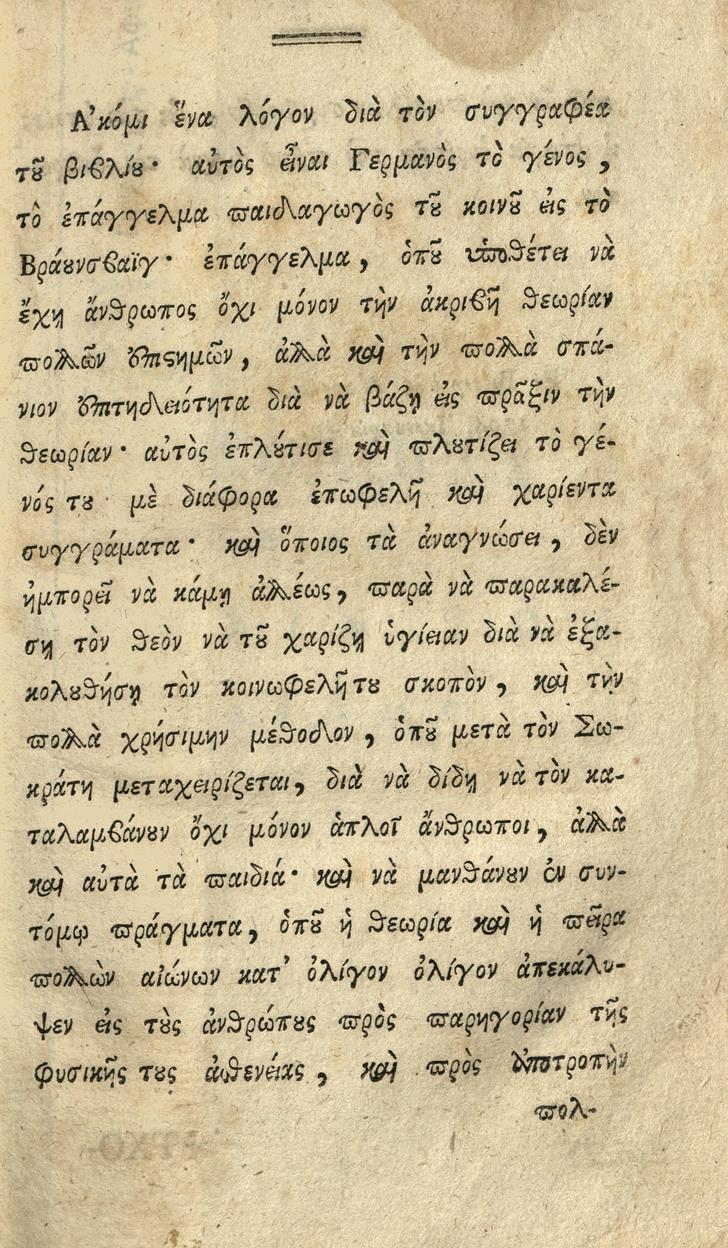 Ἀκόμι ἕνα λόγον διὰ τὸν συγγραφέα
τȣ͂ βιϐλίȣ· αὐτὸς εἶναι Γερμανὸς τὸ γένος,
τὸ ἐπάγγελμα παιδαγωγὸς τȣ͂ κοινȣ͂ εἰς τὸ
Βράȣνσϐαϊγ· ἐπάγγελμα, ὁπȣ͂ ὑποθέτει νὰ
ἔχῃ ἄνθρωπος ὄχι μόνον τὴν ἀκριϐῆ θεωρίαν
πολλῶν ἐπιϛημῶν, ἀλλὰ καὶ τὴν πολλὰ σπά-
νιον ἐπιτηδειότητα διὰ νὰ βάζῃ εἰς πρᾶξιν τὴν
θεωρίαν· αὐτὸς ἐπλȣ́τισε καὶ πλȣτίζει τὸ γέ-
νός τȣ μὲ διάφορα ἐπωφελῆ καὶ χαρίεντα
συγγράματα· καὶ ὅποιος τὰ ἀναγνώσει, δὲν
ἠμπορεῖ νὰ κάμῃ ἀλλέως, παρὰ νὰ παρακαλέ-
σῃ τὸν θεὸν νὰ τȣ͂ χαρίζῃ ὑγίειαν διὰ νὰ ἐξα-
κολȣθήσῃ τὸν κοινωφελῆ τȣ σκοπὸν, καὶ τὴν
πολλὰ χρήσιμην μέθοδον, ὁπȣ͂ μετὰ τὸν Σω-
κράτη μεταχειρίζεται, διὰ νὰ δίδῃ νὰ τὸν κα-
ταλαμϐάνȣν ὄχι μόνον ἁπλοῖ ἄνθρωποι, ἀλλὰ
καὶ αὐτὰ τὰ παιδιά· καὶ νὰ μανθάνȣν ἐν συν-
τόμῳ πράγματα, ὁπȣ͂ ἡ θεωρία καὶ ἡ πεῖρα
πολλὼν αἰώνων κατ' ὀλίγον ὀλίγον ἀπεκάλυ-
ψεν εἰς τȣ̀ς ἀνθρώπȣς πρὸς παρηγορίαν τῆς
φυσικῆς τȣς ἀσθενείας, καὶ πρὸς ἀποτροπὴν
πολ-